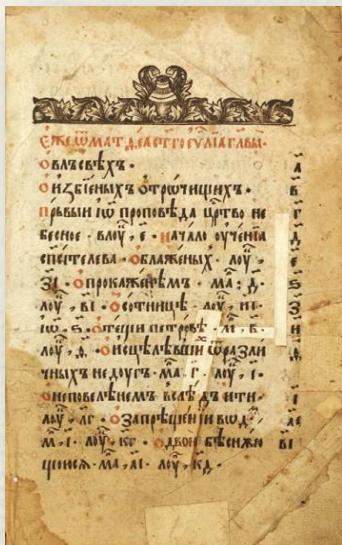 Єже ѿ мат ѳеа ст҃го еѵⷢлїа главы ·
О влъсвѣхъ · а
О избїеныхъ отрочищихъ · в
Пръвыи їѡ проповѣда црⷭтво не г
бесное · влоуⷦ҇ , є · Начало оученїа д
спⷭителева · О блаженых лоуⷦ҇ , є
ѕі · О прокаженѣмъ · маⷬ , д , ѕ
лоуⷦ҇ , ві · О сотницѣ · лоуⷦ҇ , иі з
їѡ · ѕ · О тещи петровѣ · мⷬ · в · и
лоуⷦ҇ , ѳ · О исцѣлѣвши ѿ разли ѳ
чныхъ недоугъ · маⷬ · г · лоуⷦ҇ , і · і
О неповелѣнемъ вслѣдъ ити · аі
лоуⷦ҇ , лг · О запрѣщенїи вод
мⷬ · і · лоуⷦ҇ · кг · О двою бѣсню ві
щюися · маⷬ , аі · лоуⷦ҇ , кд ·